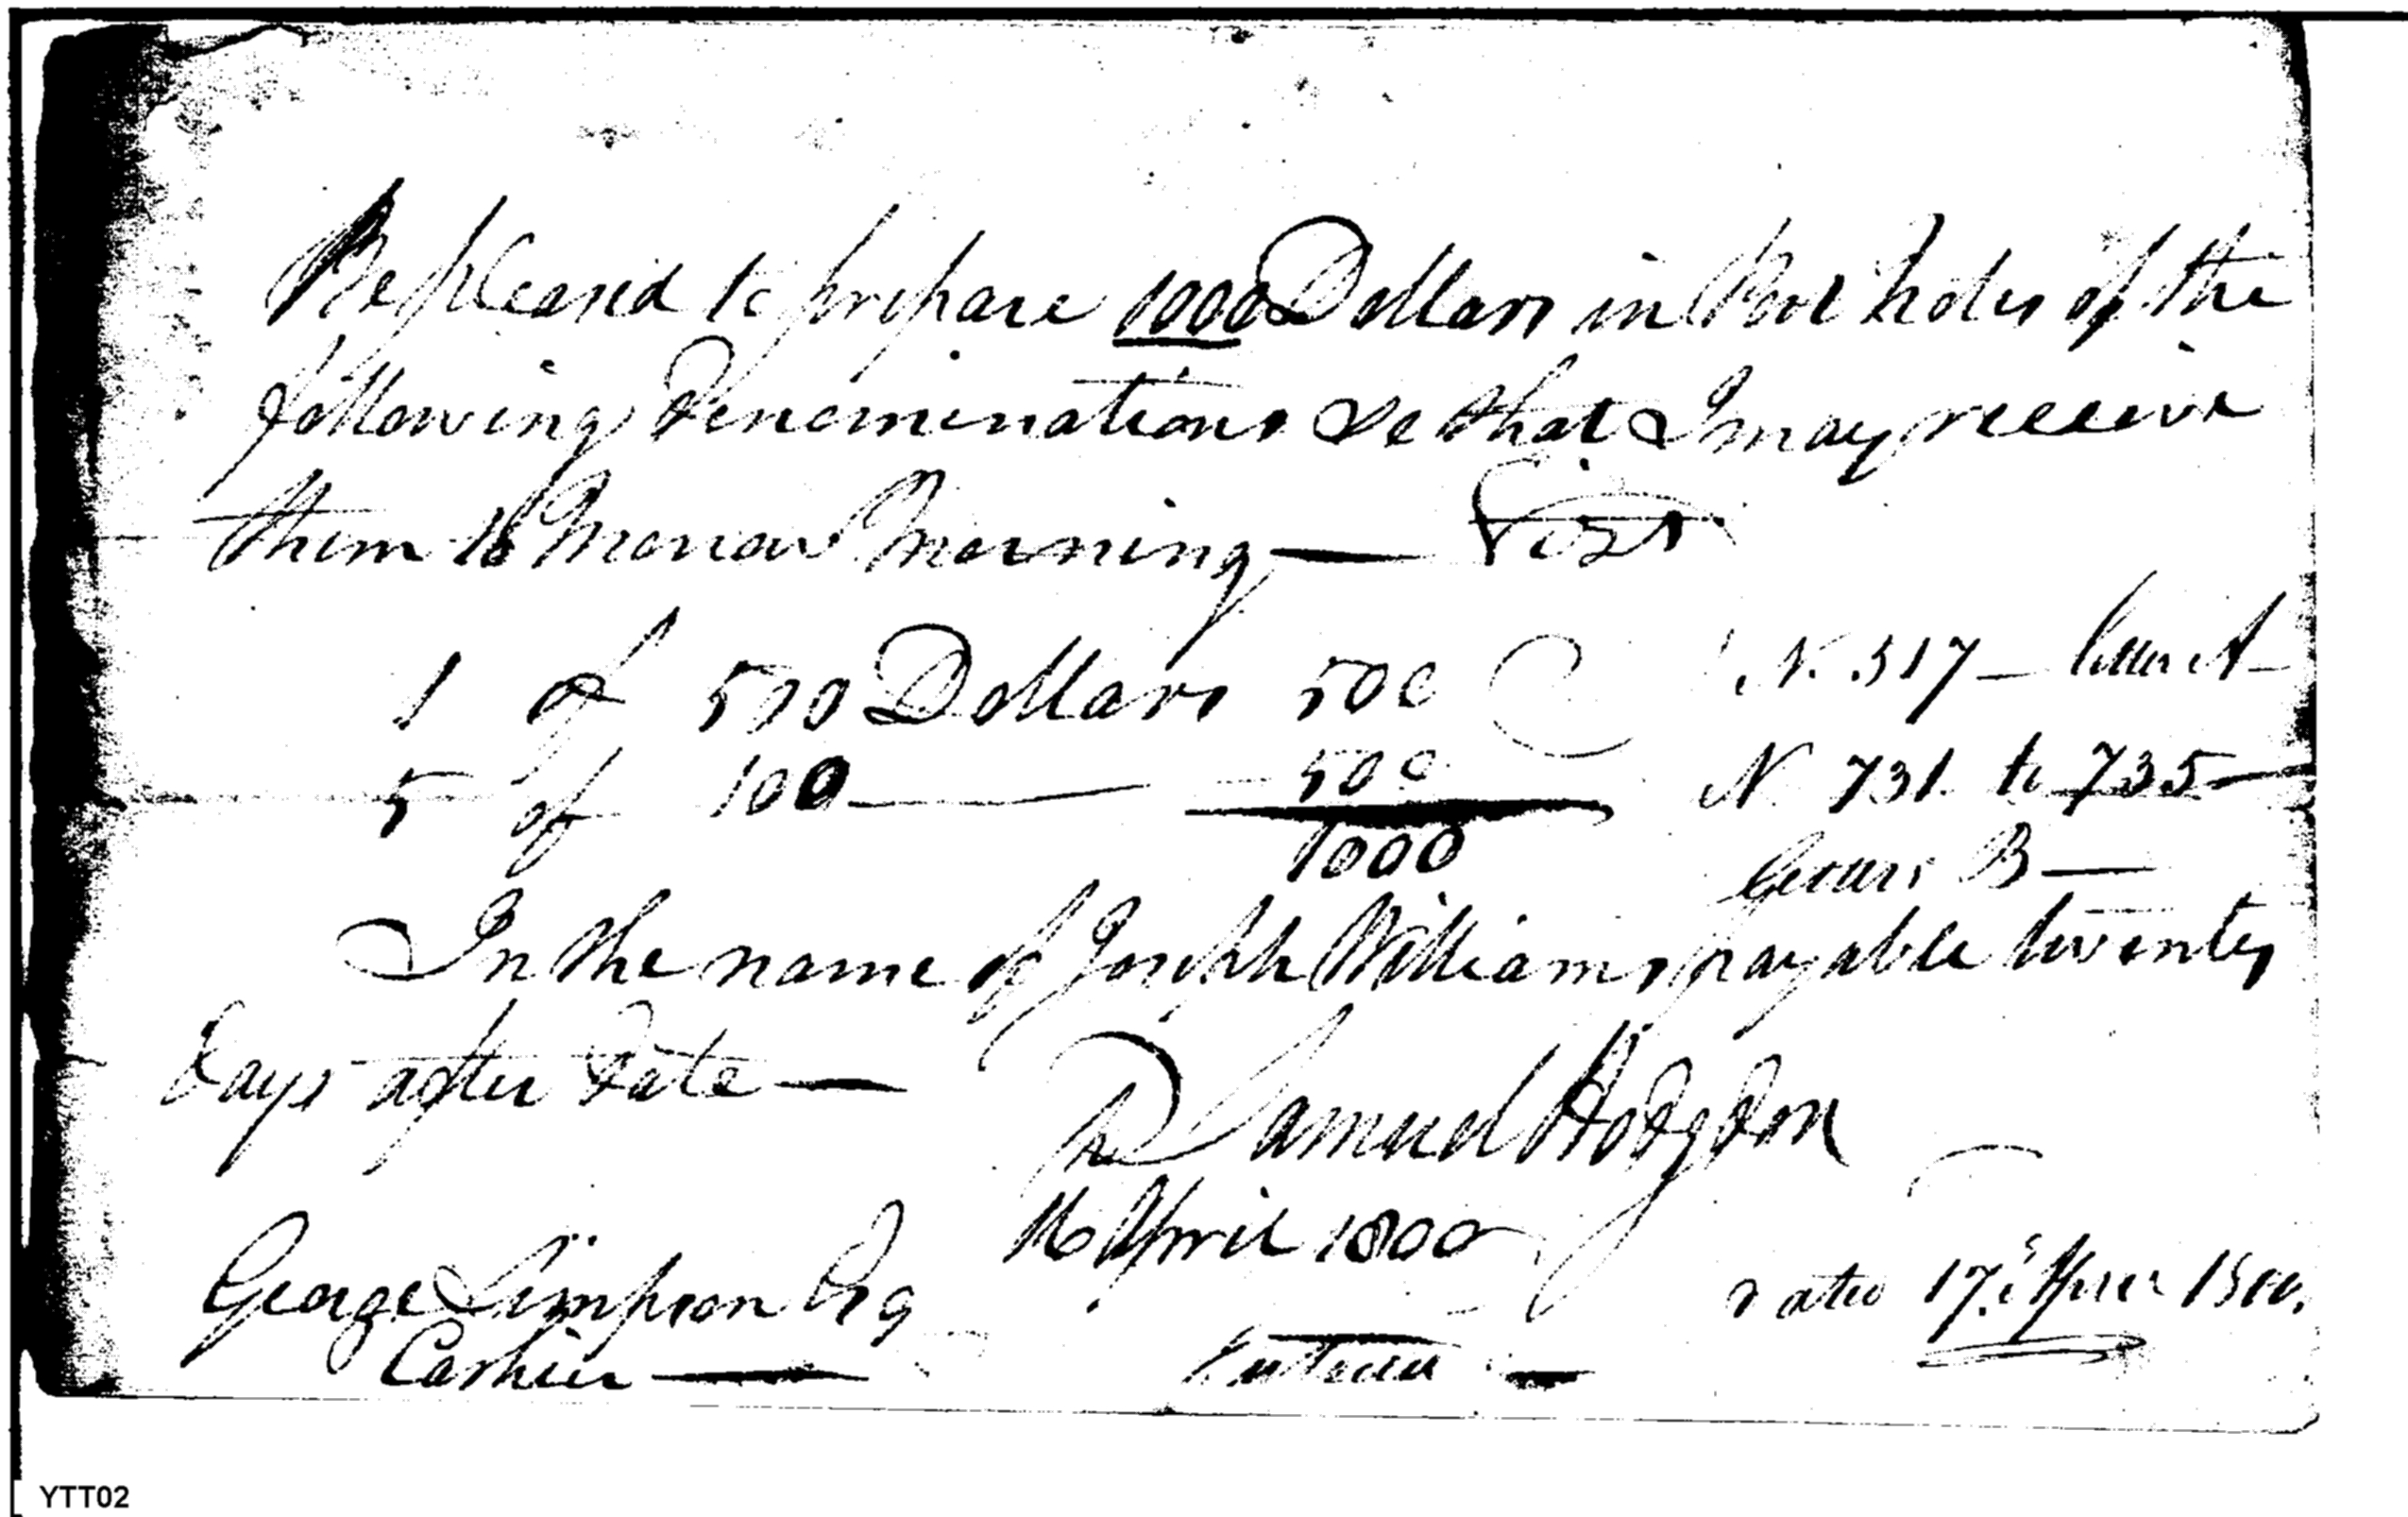 Be pleased to prepare 1000 Dollars in Post notes of the
following Denominations so that I may receive
them to Morrow Morning — Vizt
1 of 500 Dollars 500 N. 317 — Letter A —
5 of 100 — 500 N. 731 to 735 —
1000
Letter B —
In the name of Joseph Williams payable twenty
Days after date —
Samuel Hodgdon
16 April 1800
George Simpson Esq
Cashier —
dated 17th April 1800.
Entered —
YTT02